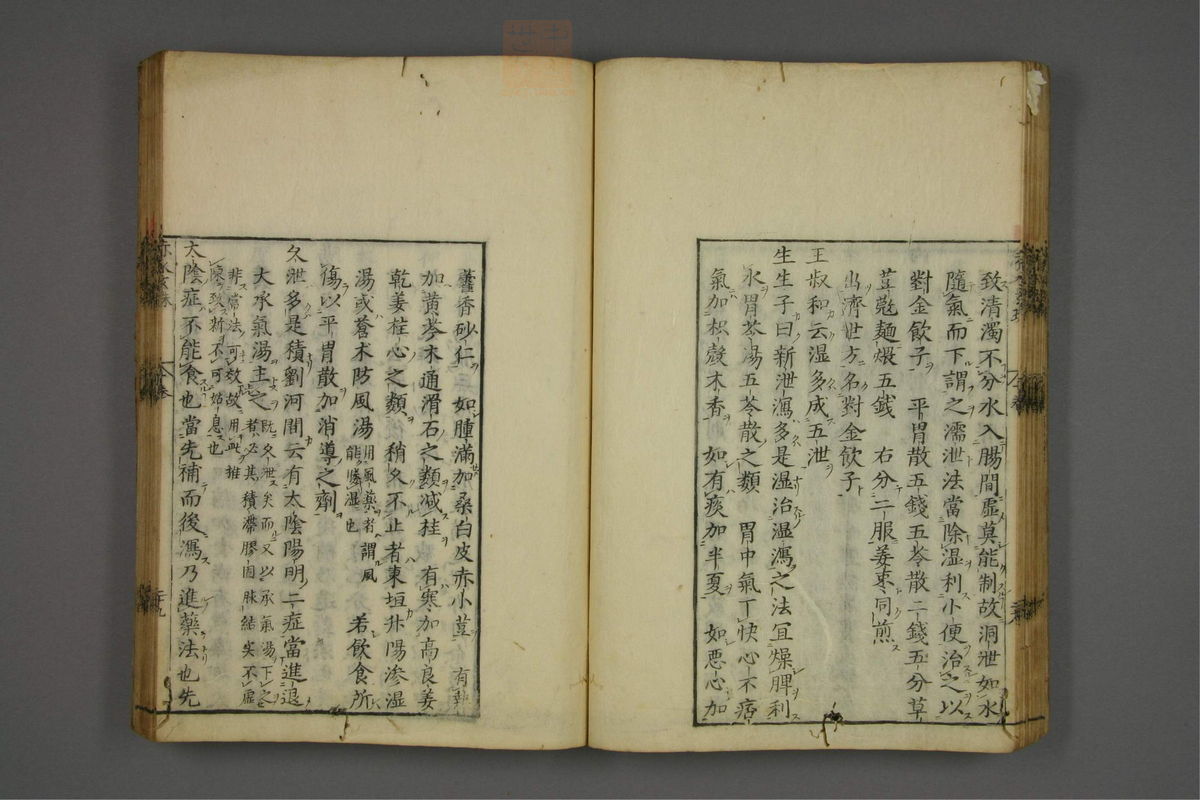 致清濁不分水入腸間虛莫能制故洞泄如水
隨氣而下謂之濡泄法當除湿利小便治之以
對金飲子　平胃散五錢五苓散二錢五分草
荳蔻麵煨五錢　右分二服姜棗同煎
出濟世方名對金飲子
王叔和云湿多成五泄
生生子曰新泄瀉多是湿治湿瀉之法宜燥脾利
水胃苓湯五苓散之類　胃中氣不快心下痞
氣加枳殼木香　如有痰加半夏　如惡心加
藿香砂仁　如腫滿加桑白皮赤小荳　有熱
加黃芩木通滑石之類减桂　有寒加高良姜
乾姜桂心之類　稍久不止者東垣升陽滲湿
湯或蒼术防風湯用風藥者謂風能勝湿也　若飲食所
傷以平胃散加消導之劑
久泄多是積劉河間云有太陰陽明二症當進退
大承氣湯主之既久泄矣而又以承氣湯下之者必其積滯膠固脉結实不虛
非常法可效故用此推陳致新不可姑息也
太陰症不能食也當先補而後瀉乃進藥法也先